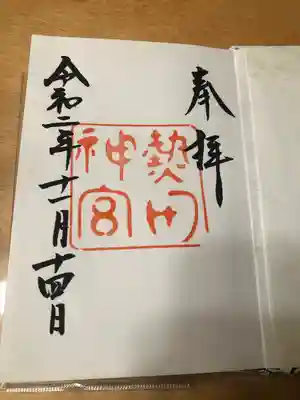 奉拝
熱田
神宮
令和二年十一月十四日